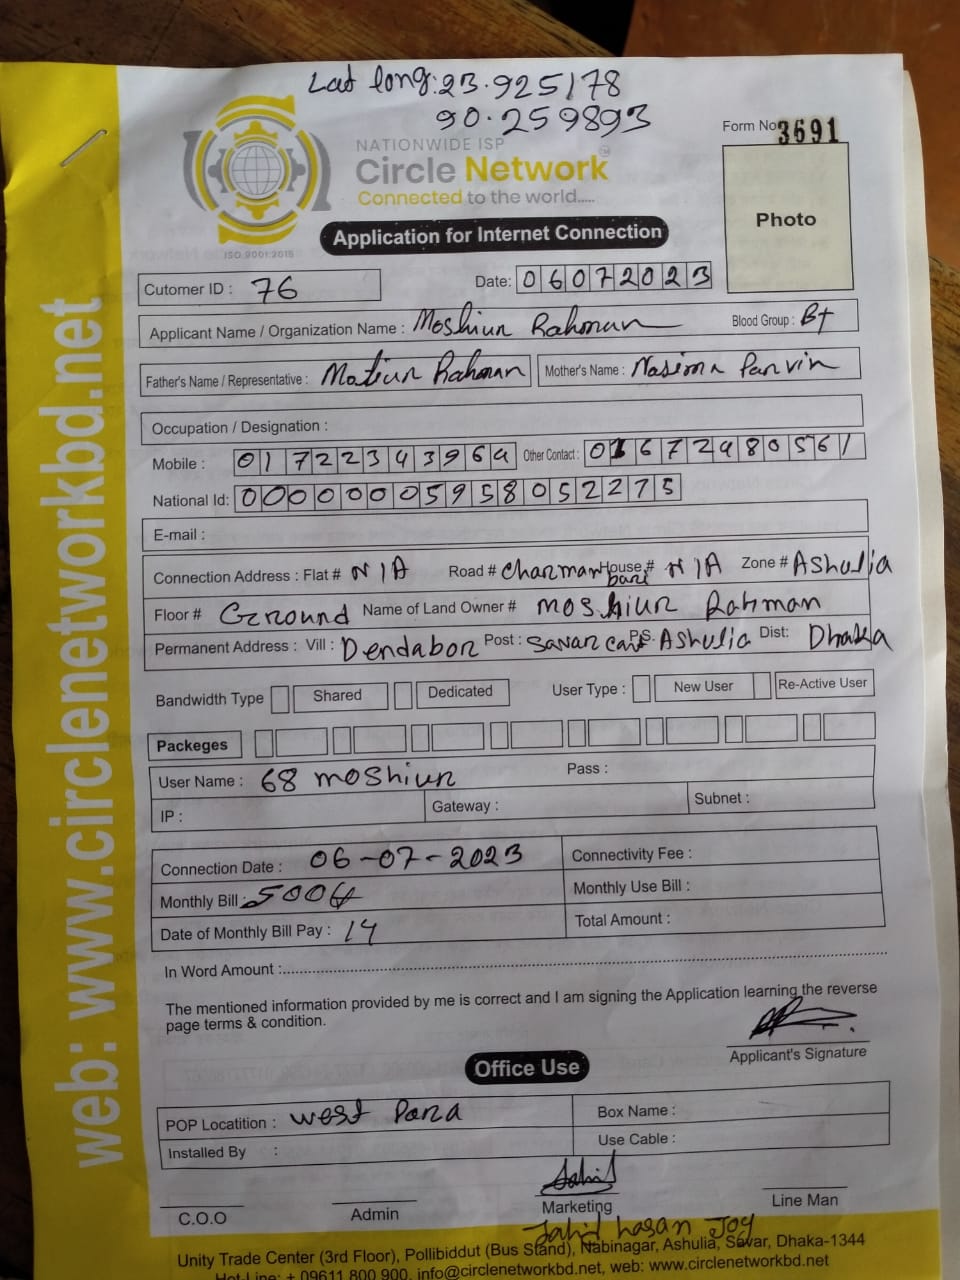 Lat long: 23.925178
90.259893
Form No 3691
NATIONWIDE ISP
Circle Network
TM
Connected to the world.....
ISO 9001:2015
Photo
Application for Internet Connection
Cutomer ID : 76
Date: 06072023
Applicant Name / Organization Name : Moshiur Rahman Blood Group : B+
Father's Name / Representative : Matiur Rahman Mother's Name : Nasima Parvin
Occupation / Designation :
Mobile : 01722343964 Other Contact : 01672480561
National Id: 00000005958052275
E-mail :
Connection Address : Flat # N/A Road # Charman bari House # N/A Zone # Ashulia
Floor # Ground Name of Land Owner # Moshiur Rahman
Permanent Address : Vill : Dendabor Post : Savar cant P.S. Ashulia Dist: Dhaka
Bandwidth Type Shared Dedicated User Type : New User Re-Active User
Packeges
User Name : 68 moshiur Pass :
IP : Gateway : Subnet :
Connection Date : 06-07-2023 Connectivity Fee :
Monthly Bill : 500 Monthly Use Bill :
Date of Monthly Bill Pay : 14 Total Amount :
In Word Amount :
The mentioned information provided by me is correct and I am signing the Application learning the reverse
page terms & condition.
Applicant's Signature
Office Use
POP Locatition : West Para Box Name :
Installed By : Use Cable :
Jahid
C.O.O Admin Marketing Line Man
Jahid hasan Joy
Unity Trade Center (3rd Floor), Pollibiddut (Bus Stand), Nabinagar, Ashulia, Savar, Dhaka-1344
Hot-Line: + 09611 800 900, info@circlenetworkbd.net, web: www.circlenetworkbd.net
web: www.circlenetworkbd.net